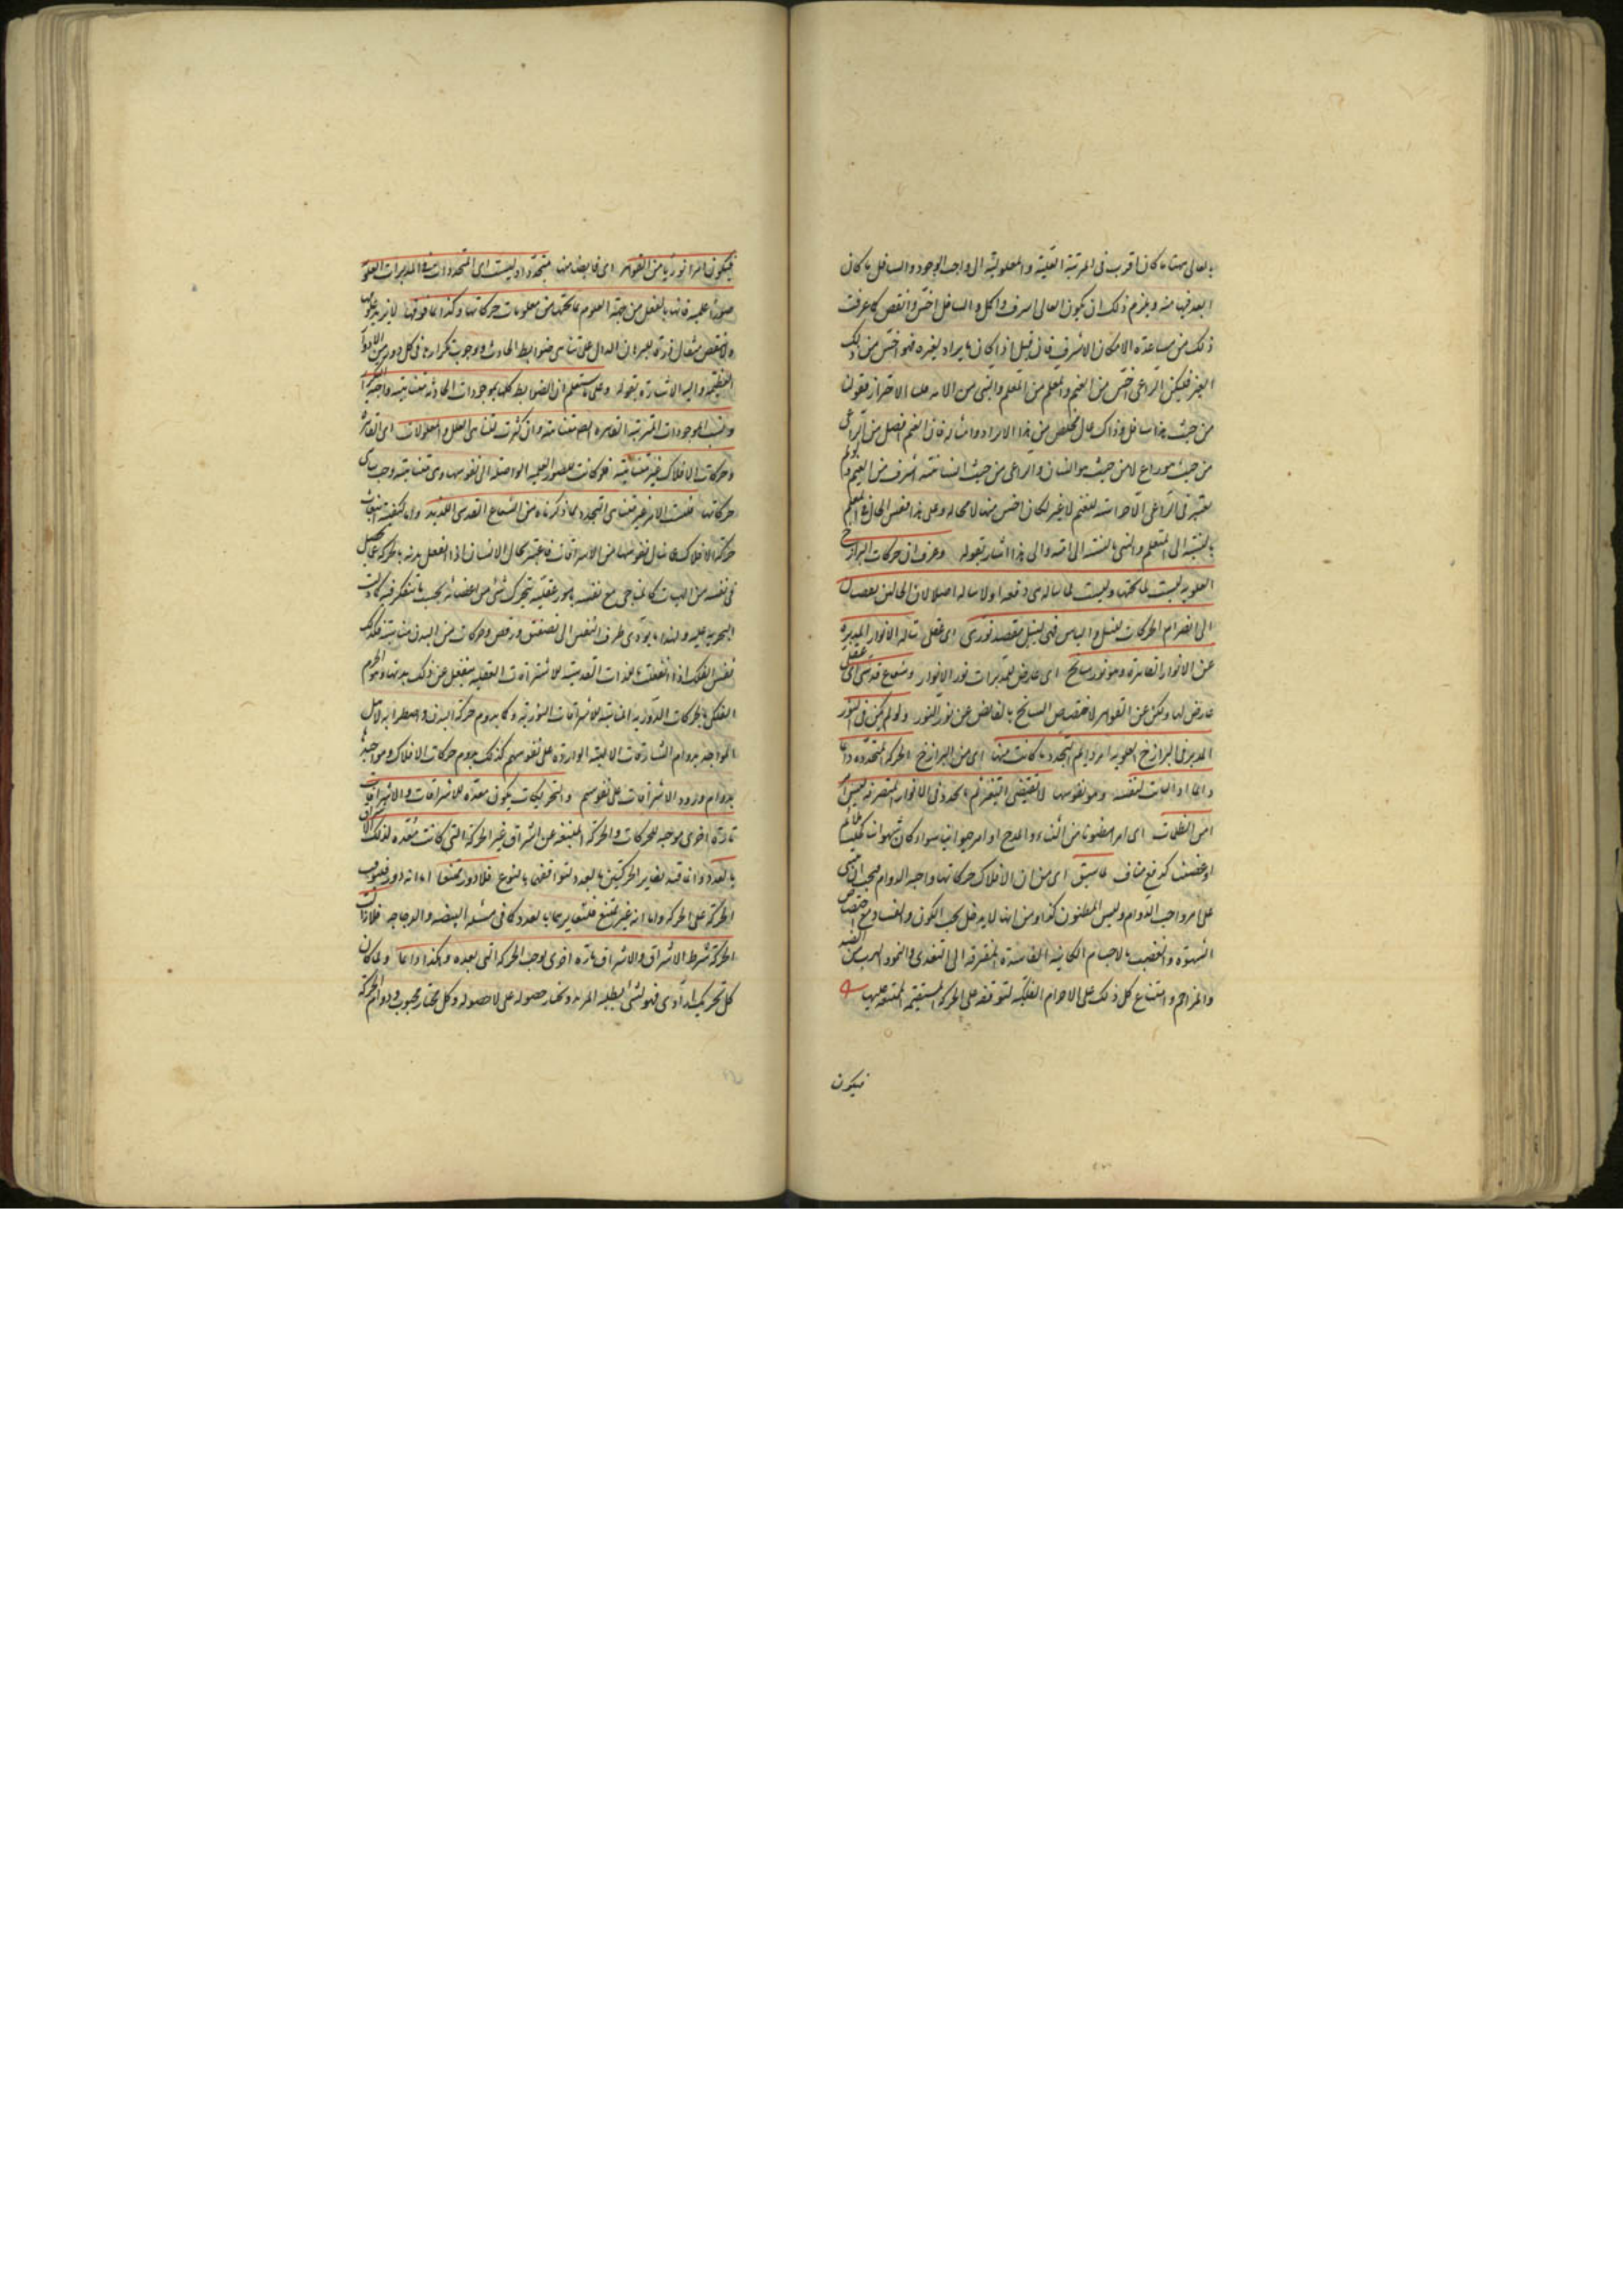 بالعالى ههنا ما كان اقرب فى المرتبة العلية والمعلولية الى واجب الوجود والسافل ما كان
ابعد فيها منه ويلزم ذلك ان يكون العالى اشرف واكمل والسافل اخس وانقص كما عرفت
ذلك من مساعدة الامكان الاشرف فان قيل لو كان ما يراد لغيره فهو اخس من ذلك
الغير فليكن الراعى اخس من الغنم والمعلم من المتعلم والنبى من الامة قلت الاحتراز بقولنا
من حيث هذا سافل وذاك عال يخلص من هذا الايراد وامثاله فان الغنم افضل من الراعى
من حيث هو راع لا من حيث هو انسان والراعى من حيث انسانيته اشرف من الغنم ولو لم
يعتبر فى الراعى الا حراسته للغنم لا غير لكان اخس منها لا محالة وعلى هذا فقس الحال فى المعلم
بالنسبة الى المتعلم والنبى بالنسبة الى امته والى هذا اشار بقوله وعرف ان حركات البرازخ
العلوية ليست لما تحتها وليست لما يناله من دفعة او لا يناله اصلا لان الحالين يفضيان
الى انصرام الحركات لنيل او الياس فهى لنيل مقصد نورى اى عقلى يناله الانوار المدبرة
عن الانوار القاهرة وهو نور سانح اى عارض للمدبرات من نور الانوار وشعاع قدسى اى عقلى
عارض لها ولكن عن القواهر لاختصاص السانح بالفائض عن نور النور ولو لم يكن فى النور
المدبر فى البرازخ العلوية امر دايم التجدد ما كانت منها اى من البرازخ الحركة المتجددة دايما
دايما اذ الثابت لنفسه وهو نفوسها لا يقتضى التغير ثم المتجدد فى الانوار المتصرفة ليس
امرا من الظلمات اى امر مظنونا من الثناء والمدح او امر حيوانيا سواء كان شهوانيا كجلب ملايم
او غضبيا كدفع مناف لما سبق اى من ان الافلاك حركاتها واجبة الدوام فيجب ان يبنى
على امر واجب الدوام وليس المظنون كذا ومن انها لا يدخل تحت الكون والفساد مع اختصاص
الشهوة والغضب بالاجسام الكاينة الفاسدة المفتقرة الى التغذى والنمو والهرب من الضد
والمزاحم وامتناع كل ذلك على الاجرام الفلكية لتوقفه على الحركة المستقيمة الممتنعة عليها
فيكون
فيكون امرا نوريا من القواهر اى فايضا منها متجددا وليست اى المتجددات فى المدبرات العلوية
صورا علمية فانها بالفعل من جهة العلوم بما تحتها من معلومات حركاتها وكذا بما فوقها لا يزيد علومها
ولا ينقص مثقال ذرة للبرهان الدال على تناهى ضوابط الحادث ووجوب تكرارها فى كل دور من الادوار
العظيمة واليه الاشارة بقوله وعلى ما ستعلم ان الضوابط كلها لموجودات الحادثة متناهية واجبة التكرار
ونسب الموجودات المترتبة القاهرة ايضا متناهية وان كثرت لتناهى العلل والمعلولات اى القاهرة
وحركات الافلاك غير متناهية فلو كانت للصور العلمية الواصلة الى نفوسها وهى متناهية وجب تناهى
حركاتها فليست الا لامر غير متناهى التجدد مما ذكرناه من الشعاع القدسى اللذيذ واما كيفية انبعاث
حركة الافلاك عما ينال نفوسها من الاشراقات فاعتبر بحال الانسان اذا انفعل بدنه بالحركة عما يحصل
فى نفسه من الهيئات كالمناجى مع نفسه بامور عقلية يتحرك شئ من اعضائه بحسب ما يتفكر فيه كما دلت
التجربة عليه ولهذا ما يؤدى طرب النفس الى تصفيق ورقص وحركات من البدن مناسبة فكذلك
نفس الفلك اذا انفعلت باللذات القدسية للاشراقات العقلية ينفعل عن ذلك بدنها وهو الجرم
الفلكى بالحركات الدورية المناسبة للاشراقات النورية وكما يدوم حركة البدن واضطرابه لاهل
المواجيد بدوام الشارقات الالهية الواردة على نفوسهم كذلك يدوم حركات الافلاك ومواجيدها
بدوام ورود الاشراقات على نفوسهم والتحريكات يكون معدة للاشراقات والاشراقات
تارة اخرى موجبة للحركات والحركة المنبعثة عن اشراق غير الحركة التى كانت معدة لذلك الاشراق
بالعدد وانما قيد تغاير الحركتين بالعدد لتوافقهما بالنوع فلا دور ممتنعا اما انه دور فلتوقف
الحركة على الحركة واما انه غير ممتنع فلتغايرهما بالعدد كما فى مسئلة البيضة والدجاجة فلا زالت
الحركة شرط الاشراق والاشراق تارة اخرى يوجب الحركة التى بعده وهكذا دايما ولما كان
كل تحريك ارادى فهو لشئ يطلبه المريد ويختار حصوله على لا حصوله وكل مختار محبوب ودوام الحركة